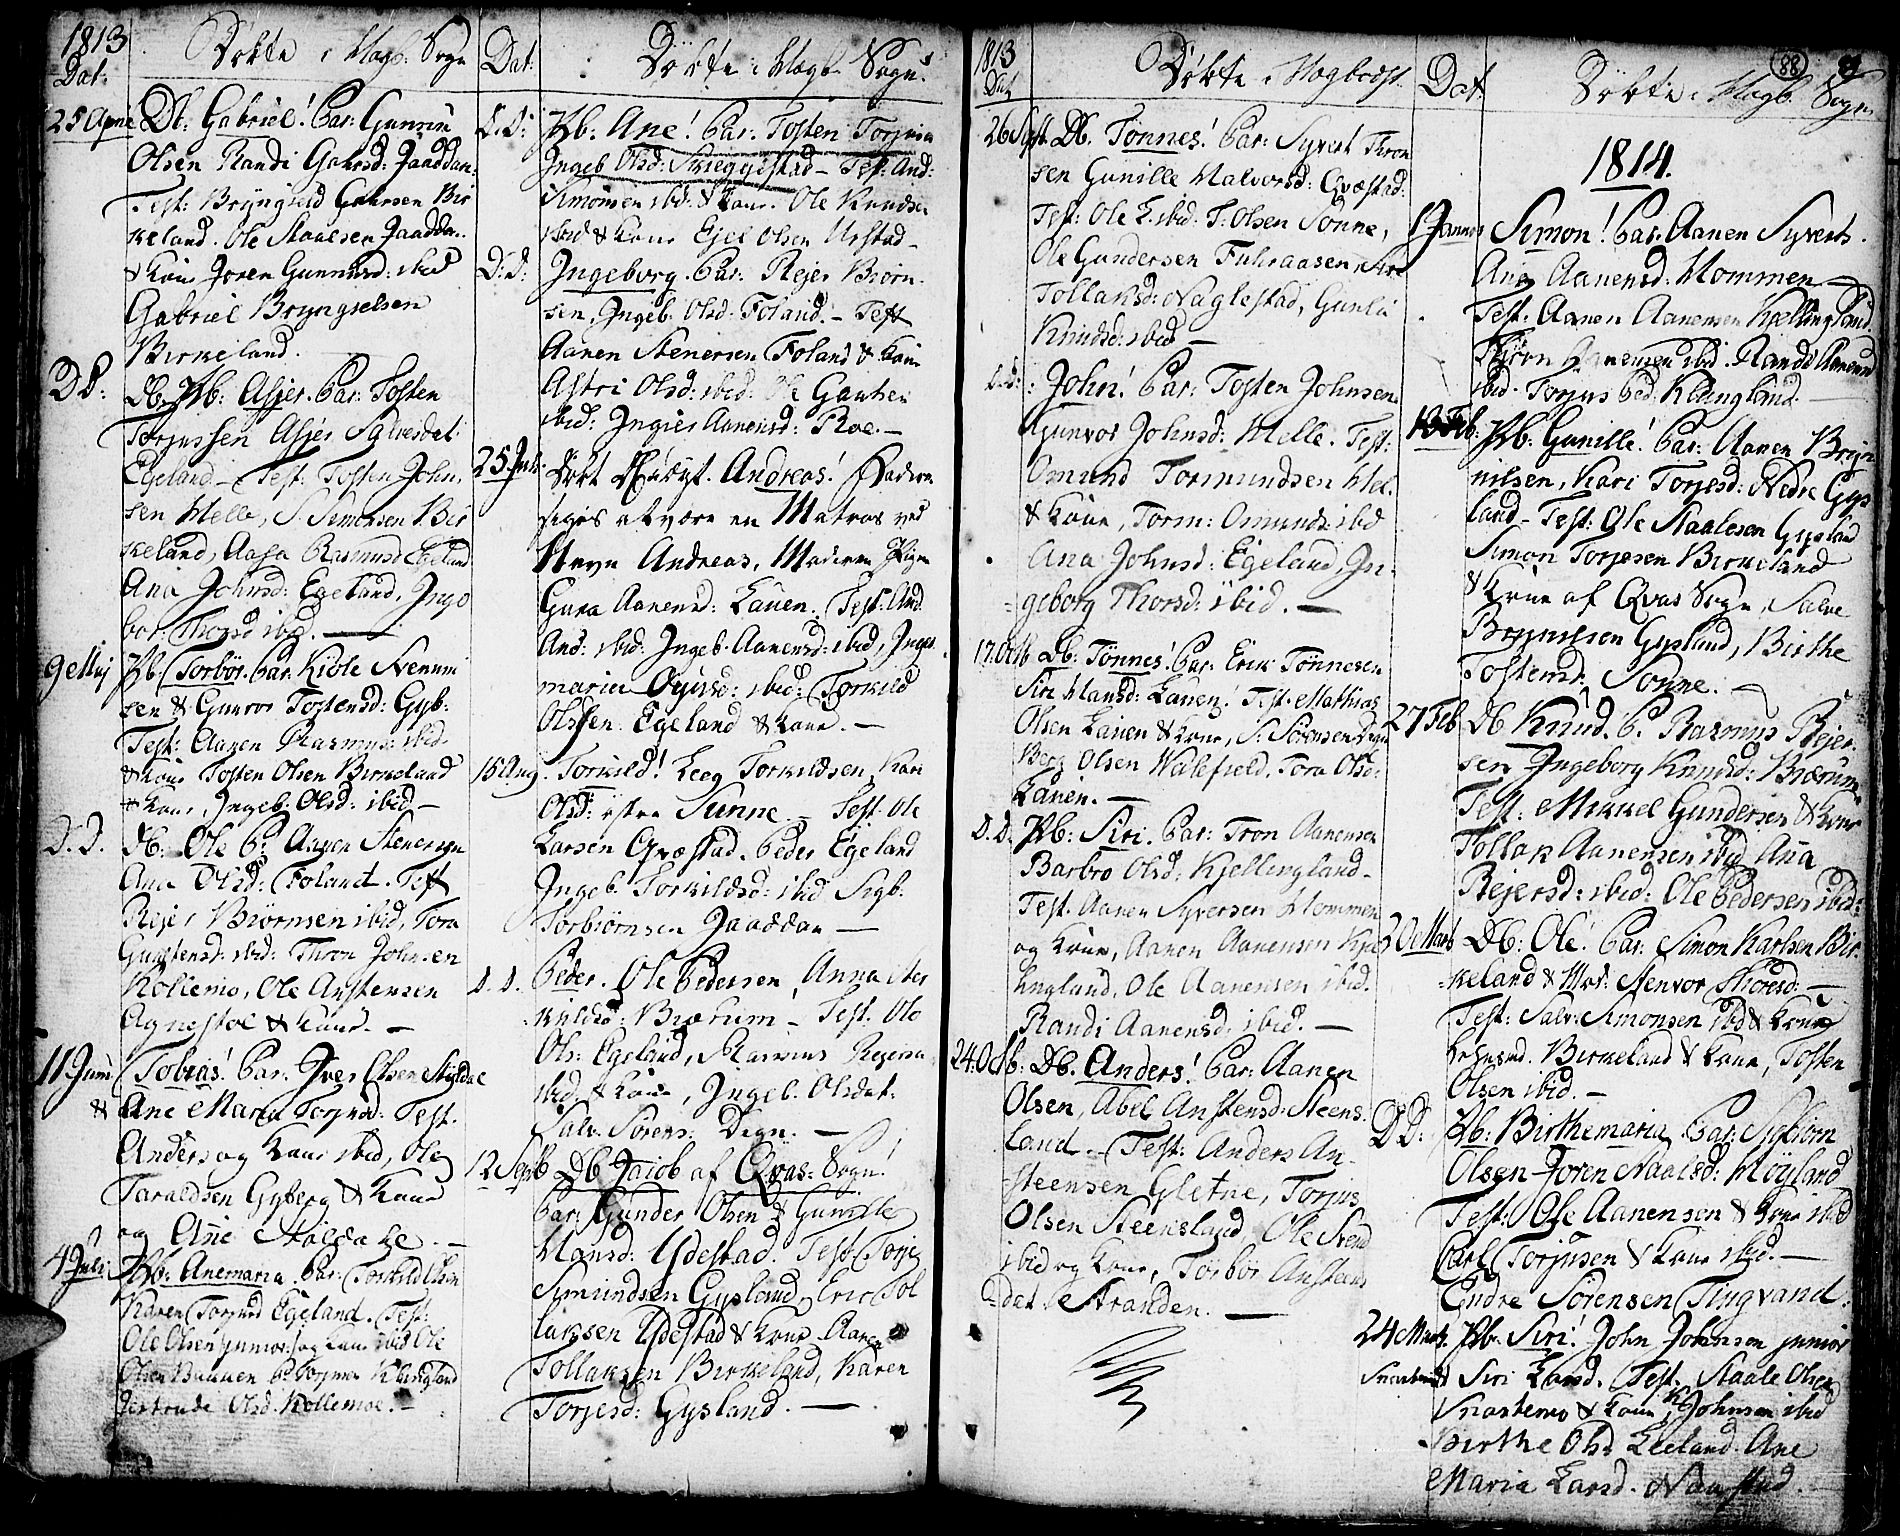 1813
Dat:
Døbte i Hægb. Sogn
25 April
Db: Gabriel! Par: Gunnu
Olsen Randi Gabrsd: Jaaddan:
Test: Bryngield Gabrsen Bir
keland. Ole Staalsen Jaaddan.
& Kone Joren Gunnursd: ibid
Gabriel Bryngelsen
Birkeland.
D D:
Db. Hb: Asjer. Par: Tosten
Torjussen Asjer Salvesdat:
Egeland - Test: Tosten John
sen Helle, S. Simonsen Bir
keland, Aasa Rasmusd Egeland
Ana Johnsd: Egeland, Inge
bor: Thorsd ibid.
9 Maj
Hb: Torbor. Par: Kiøle Svennu
sen & Gunvor Tostensd: Gyb:
Test: Aanen Rasmus: ibid
& Kone Tosten Olsen Birkeland
& Kone, Ingeb. Olsd: ibid -
D. D.
Db: Ole P: Aanen Stenersen
Ana Olsd: Foland. Test
Rejer Biørnsen ibid, Tora
Gunstensd: ibid: Thron Johnsen
Kollemo, Ole Anstensen
Agnestøl & Kone. -
11 Juni
Tobias! Par. Iver Olsen
& Ane Maria Torjusd: Test.
Anders og Kone ibid, Ole
Taraldsen Gyberg & Kone
og Ane
4 Juli
Hb: Anemaria. Par: Torkild Olsen
Karen Torjusd Egeland. Test:
Ole Olsen junior og Kone ibid Ole
Olsen P. Torjusen Klungland
Jertrude Olsd. Kollemoe. -
Dat:
Døbte i Hægb. Sogn.
D. D:
Hb: Ane! Par. Tosten Torjusen
Ingeb Olsd: Skreggestad - Test: And:
Simonsen ibid: & Kone. Ole Knudsen
ibid & Kone Ejel Olsen Urstad -
D: D:
Ingeborg. Par: Rejer Biørn
sen, Ingeb. Olsd. Foland. - Test
Aanen Stenersen Foland & Kone
Astri Olsd: ibid: Ole Gautsen
ibid: Ingier Aanensd: Roe. -
25 Juli:
Døbt Andreas! Faderen
siges at være en Matros ved
Navn Andreas, Moderen Pigen
Gura Aanensd: Lauen. Test: And.
And: ibid: Ingeb. Aanensd: ibid, Inger
maria ibid: Torkild
Olssen Egeland & Kone. -
15 Aug.
Torkild! Leeg Torkildsen Kari
Olsd: østre Sunne - Test. Ole
Larsen Qvæstad. Peder Egeland
Ingeb. Torkildsd: ibid Sigb.
Torbiørnsen Jaaddan -
D. D.
Peder. Ole Pedersen, Anna Mer
kyldsd: Bierum - Test. Ole
Ols: Egeland, Rasmus Rejersen
ibid & Kone, Ingeb. Olsdat:
Salv. Sørens: Degn. -
12 Septb
Db Jacob af Qvas: Sogn!
Par: Gunder Olsen & Gunille
Hansd: Ydestad. Test: Torje
Simundsen Gysland, Eric Tol
laksen Ydestad & Kone Aanen
Tollaksen Birkeland, Karen
Torjesd: Gysland. -
1813
Dat
Døbte i Hægbost.
26 Sept.
Db. Tønnes! Par: Syvert Thron
sen Gunille Halvorsd: Qvæstad:
Test: Ole L. ibid. T. Olsen Sonne,
Ole Gundersen Fuhraasen, Siri
Tollaksd: Naglestad, Gunla
Knudsd: ibid -
D. D:
John! Par: Tosten Johnsen
Gunvor Johnsd: Helle. Test:
Omund Tormundsen Hel.
& Kone, Torm: Omunds: ibid
Ana Johnsd: Egeland, In-
geborg Thorsd: ibid. -
17. Octb
Db: Tønnes! Par: Erik Tønnesen
Siri Hansd: Lauen! Test. Mathias
Olsen Lauen & Kone, S: Sørensen Degn
Berg Olsen Watefield, Tora Olsd:
Lauen. -
D. D.
Hb: Siri. Par: Tron Aanensen
Barbro Olsd: Kjellingland -
Test. Aanen Syversen Hommen
og Kone, Aanen Aanensen Kje
lingland, Ole Aanensen ibid.
Randi Aanensd. ibid. -
24: Octb:
Db. Anders! Par: Aanen
Olsen, Abel Anstensd: Steens.
land. - Test: Anders An-
steensen Gletne, Torjus
Olsen Steensland, Ole Svend
ibid og Kone, Torbor Ansteens
dat: Stranden. -
88
Dat.
Døbte i Hægb. Sogn.
1814.
1 Januar
Simon! Par: Aanen Syverts.
Ana Aanensd: Hommen -
Test: Aanen Aanensen Kjellingland.
Biørn Aanensen ibid. Randi Aanensd
ibid. Torjus Ped. Klungland. -
13 Feb:
Hb: Gunille! Par: Aanen Bryn
nilsen, Kari Torjesd: Nedre Gys
land - Test: Ole Staalesen Gysland
Simon Torjesen Birkeland
& Kone af Qvas Sogn, Salve
Brynnilsen Gysland, Birthe
Tostensd: Sonne. -
27 Feb
Db Knud. P. Rasmus Rejer
sen Ingeborg Knudsd: Bierum
Test: Mikkel Gundersen & Kone
Tollak Aanensen ibid Ana
Rejersd: ibid: Ole Pedersen ibid:
20 Marts
Db: Ole! Par: Simon Karlsen Bir
keland & Mod: Stenvor Thorsd: -
Test: Salv: Simonsen ibid & Kone
Birkeland & Kone, Tosten
Olsen ibid. -
D D:
Hb: Birthemaria Par: Sigbiørn
Olsen Joren Staalsd: Høyland
Test: Ole Aanensen & Kone ibid
Carl Torjusen & Kone ibid. -
Endre Sørensen Tingvand.
24 Marts.
Hb. Siri! John Johnsen junior
Snartemo Siri Larsd. Test. Staale Olsen
Snartemo & Kone, K Johnsen ibid
Birthe Olsd Leeland Ane
Maria Larsd.